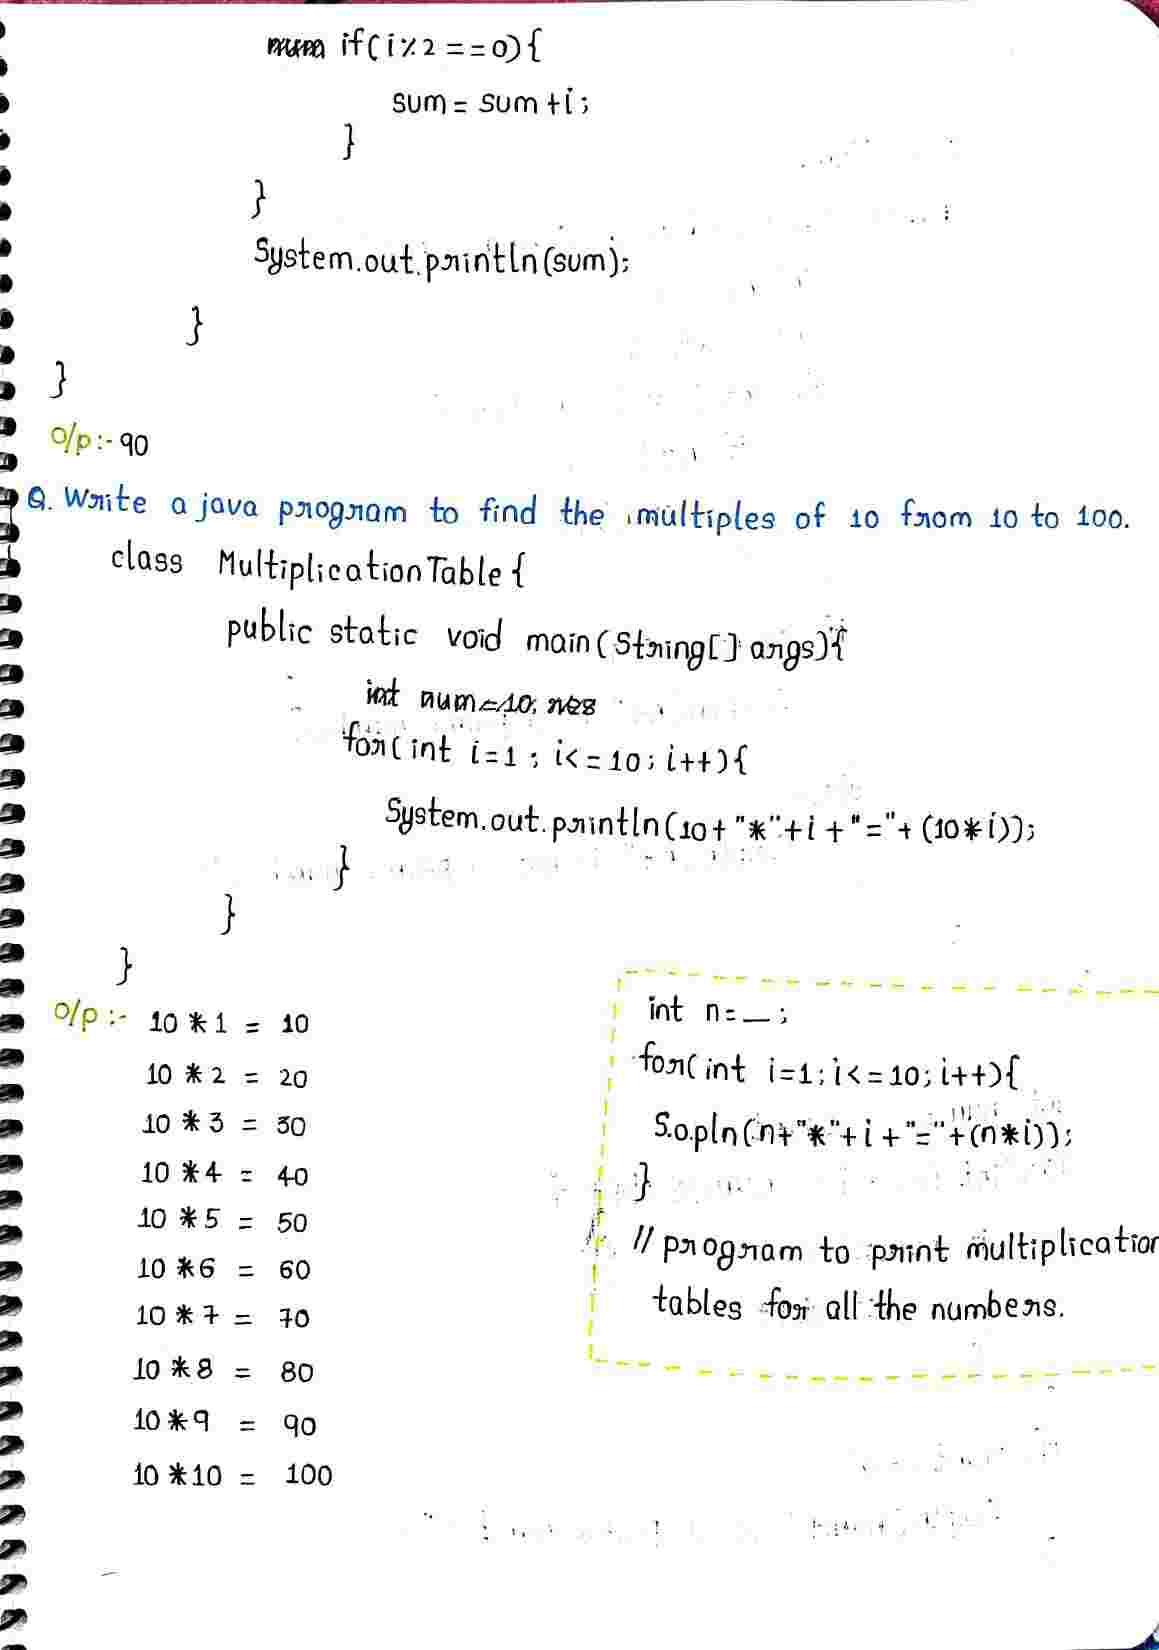 if(i%2==0){
sum = sum+i;
}
}
System.out.println(sum);
}
}
O/p:- 90
Q. Write a java program to find the multiples of 10 from 10 to 100.
class MultiplicationTable{
public static void main(String[] args){
int num=10;
for(int i=1; i<=10; i++){
System.out.println(10+"*"+i+"="+(10*i));
}
}
}
O/p:- 10 * 1 = 10
10 * 2 = 20
10 * 3 = 30
10 * 4 = 40
10 * 5 = 50
10 * 6 = 60
10 * 7 = 70
10 * 8 = 80
10 * 9 = 90
10 * 10 = 100
int n=__;
for(int i=1; i<=10; i++){
S.o.pln(n+"*"+i+"="+(n*i));
}
// program to print multiplication
tables for all the numbers.